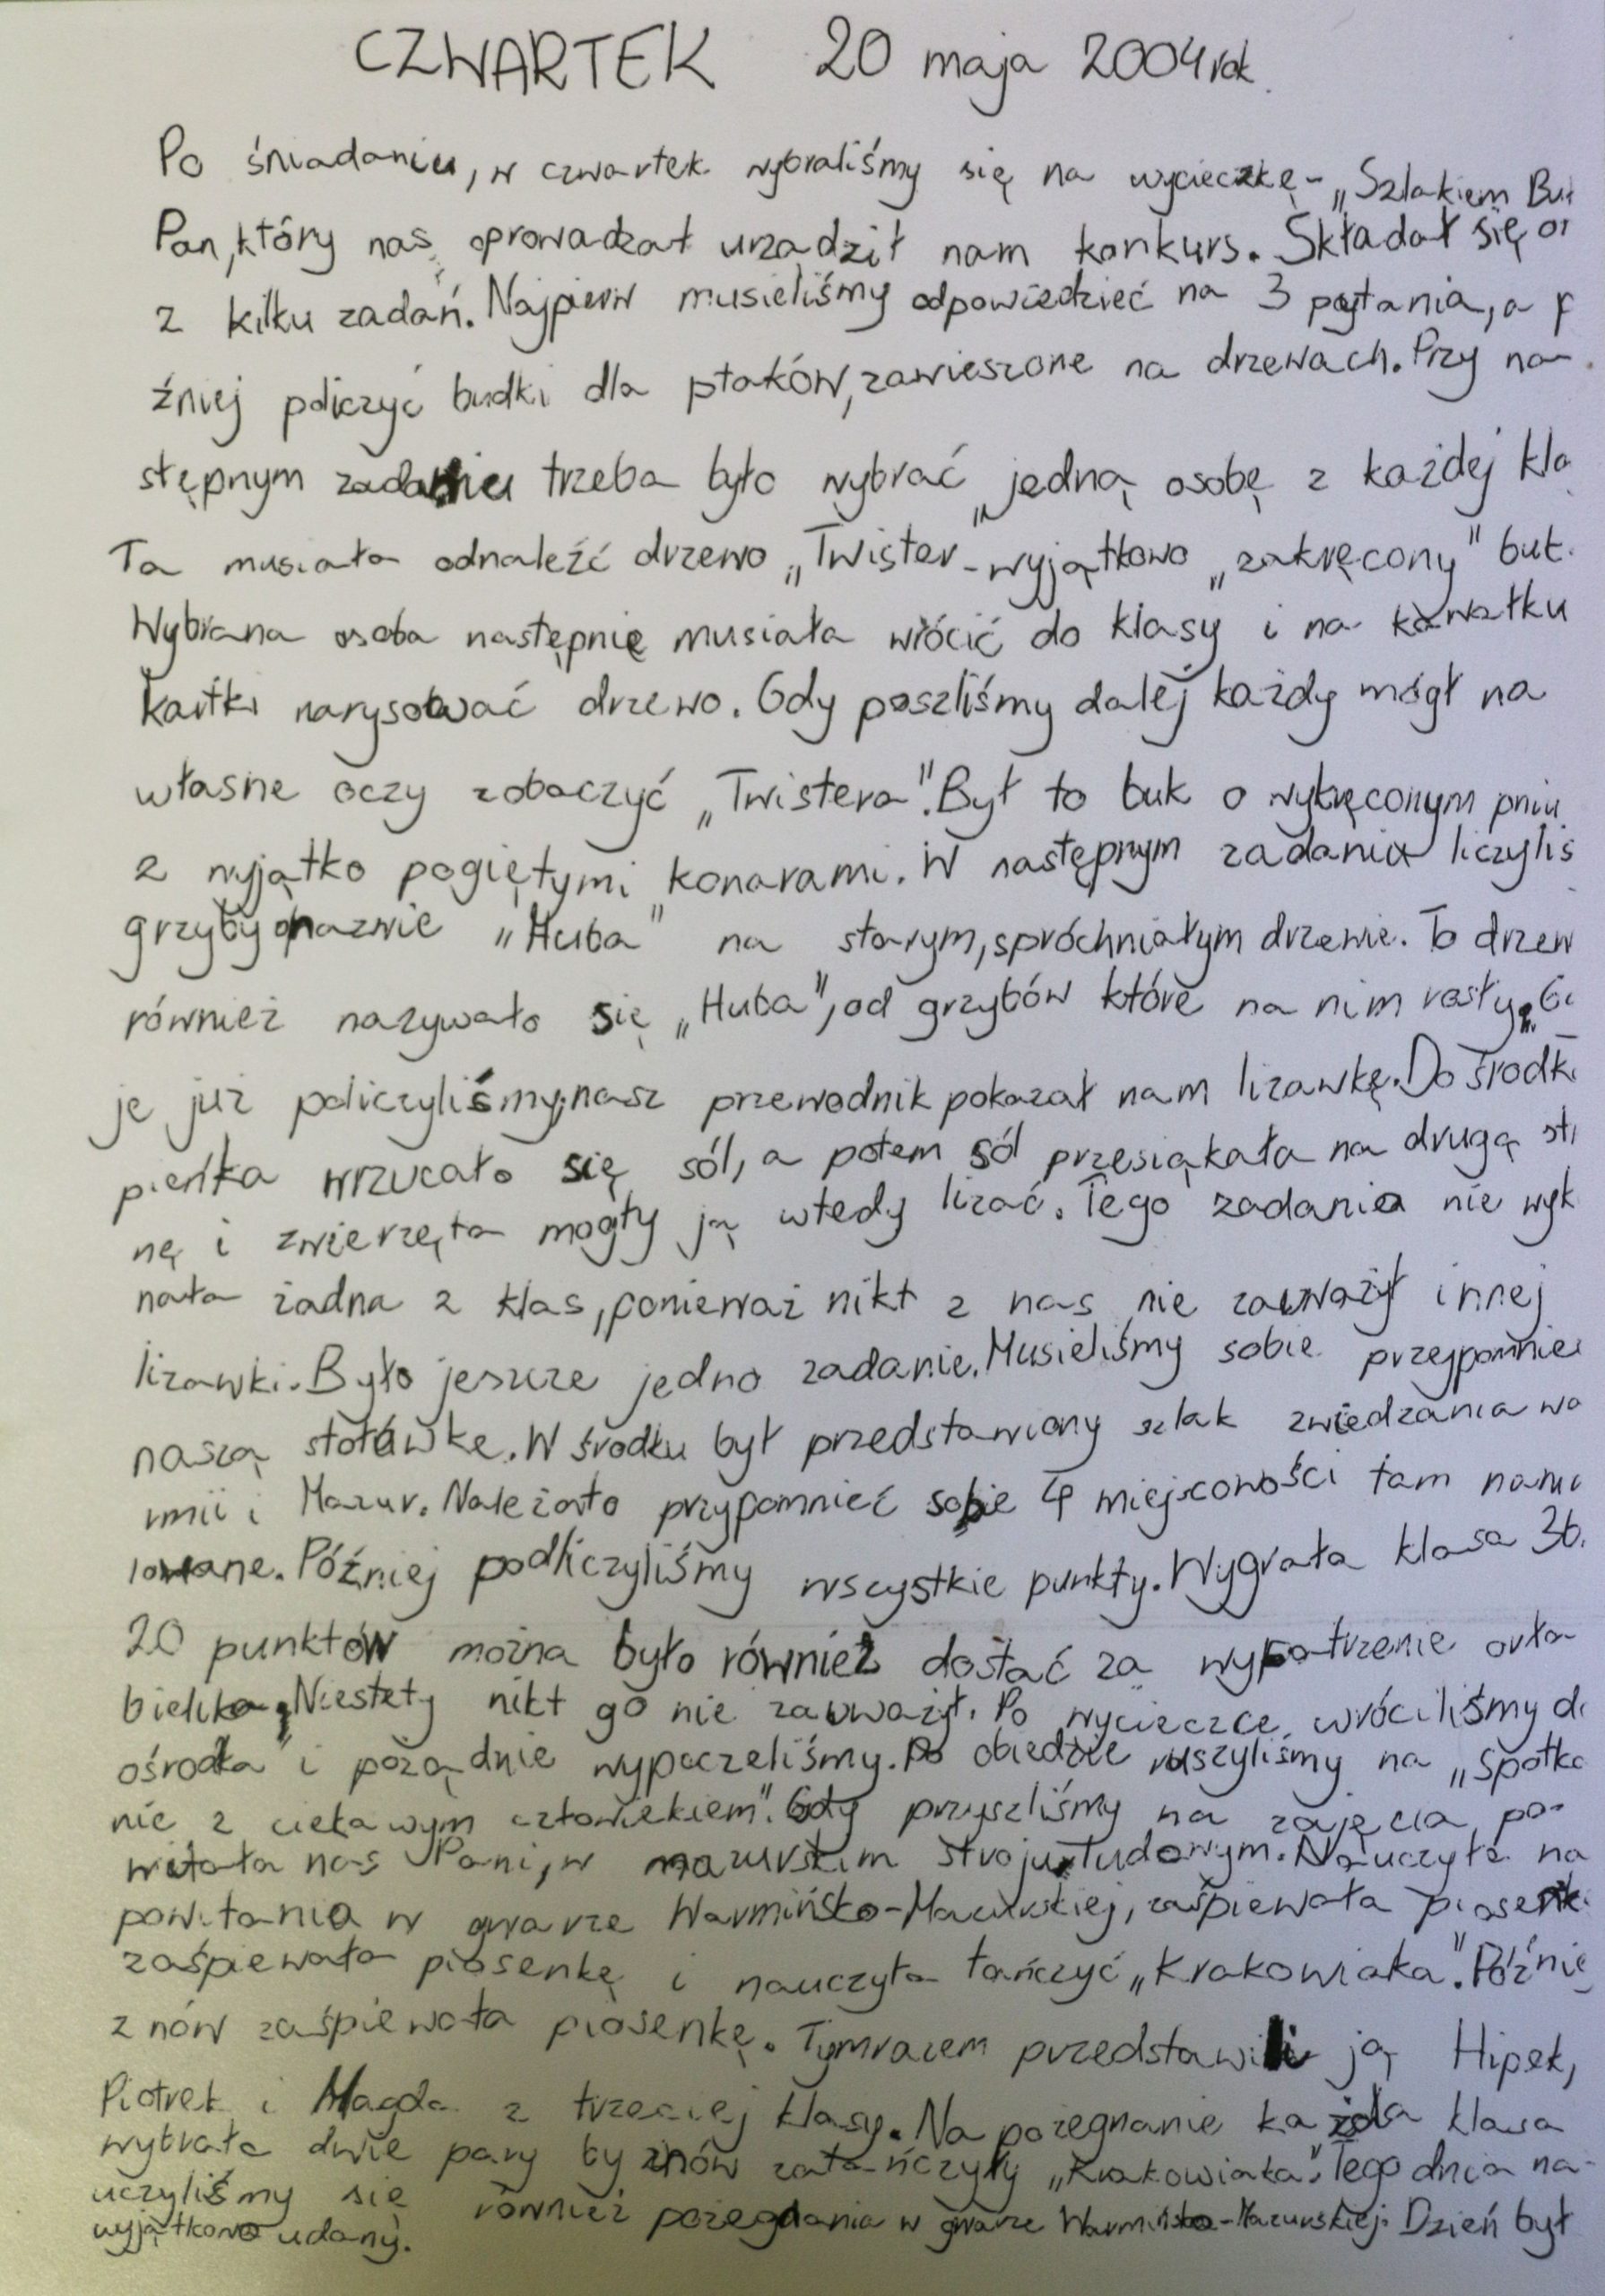 CZWARTEK 20 maja 2004 rok.
Po śniadaniu, w czwartek wybraliśmy się na wycieczkę - „Szlakiem Bu
Pan, który nas oprowadzał urządził nam konkurs. Składał się on
z kilku zadań. Najpierw musieliśmy odpowiedzieć na 3 pytania, a p
źniej policzyć budki dla ptaków, zawieszone na drzewach. Przy na-
stępnym zadaniu trzeba było wybrać „jedną osobę z każdej kla
Ta musiała odnaleźć drzewo „Twister - wyjątkowo „zakręcony" buk.
Wybrana osoba następnie musiała wrócić do klasy i na kawałku
kartki narysować drzewo. Gdy poszliśmy dalej każdy mógł na
własne oczy zobaczyć „Twistera". Był to buk o wykręconym pniu
z wyjątko pogiętymi konarami. W następnym zadaniu liczyliś
grzyby o nazwie „Huba" na starym, spróchniałym drzewie. To drzew
również nazywało się „Huba", od grzybów które na nim rosły. Gd
je już policzyliśmy, nasz przewodnik pokazał nam lizawkę. Do środk
pieńka wrzucało się sól, a potem sól przesiąkała na drugą st
nę i zwierzęta mogły ją wtedy lizać. Tego zadania nie wyk
nała żadna z klas, ponieważ nikt z nas nie zauważył innej
lizawki. Było jeszcze jedno zadanie. Musieliśmy sobie przypomnie
naszą stołówkę. W środku był przedstawiony szlak zwiedzania wa
rmii i Mazur. Należało przypomnieć sobie 4 miejscowości tam nama
lowane. Później podliczyliśmy wszystkie punkty. Wygrała klasa 3b.
20 punktów można było również dostać za wypatrzenie orła
bielika. Niestety nikt go nie zauważył. Po wycieczce wróciliśmy do
ośrodka i pożądnie wypoczeliśmy. Po obiedzie ruszyliśmy na „spotka
nie z ciekawym człowiekiem". Gdy przyszliśmy na zajęcia, po-
witała nas Pani, w mazurskim stroju ludowym. Nauczyła na
powitania w gwarze Warmińsko-Mazurskiej, zaśpiewała piosenk
zaśpiewała piosenkę i nauczyła tańczyć „Krakowiaka". Późnie
znów zaśpiewała piosenkę. Tymrazem przedstawili ją Hipek,
Piotrek i Magda z trzeciej klasy. Na pożegnanie każda klasa
wybrała dwie pary by znów zatańczyły „Krakowiaka". Tego dnia na-
uczyliśmy się również pożegnania w gwarze Warmińsko-Mazurskiej. Dzień był
wyjątkowo udany.